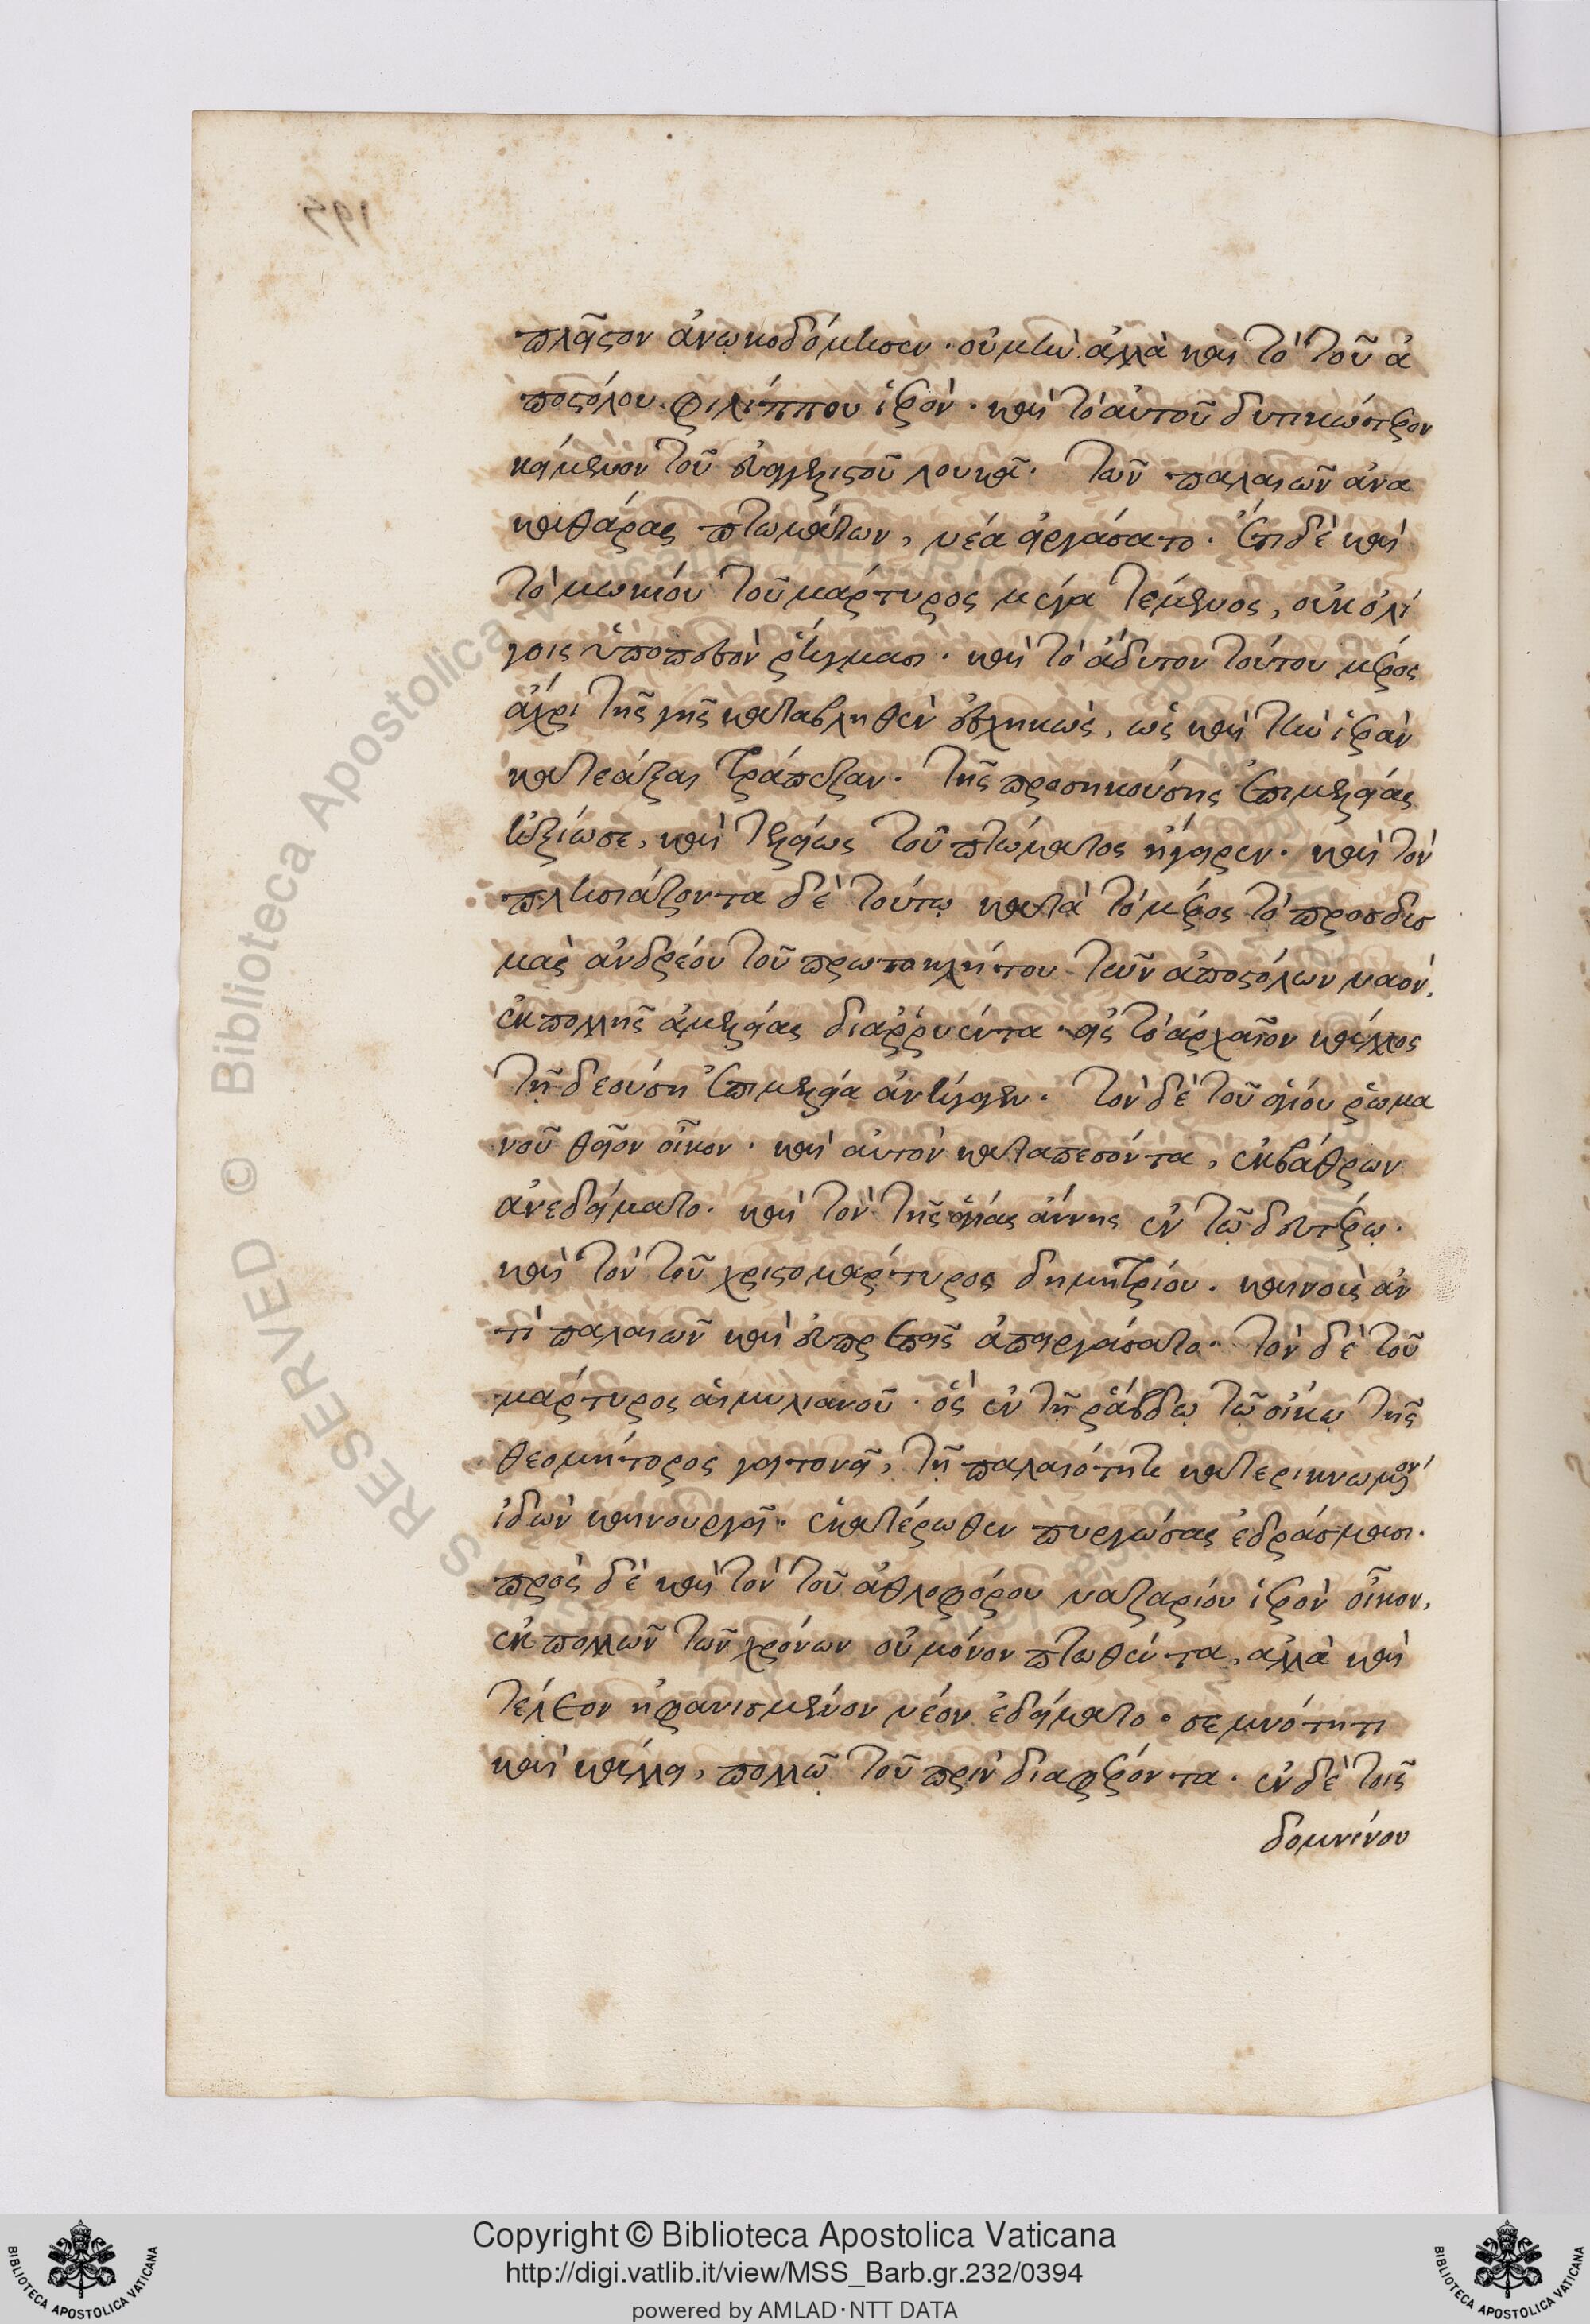 πλεῖστον ἀνῳκοδόμησεν · οὐμὴν ἀλλὰ καὶ τὸ τοῦ ἀ
ποστόλου φιλίππου ἱερόν · καὶ τὸ αὐτοῦ δυτικώτερον
κείμενον τοῦ εὐαγγελιστοῦ λουκᾶ · τῶν παλαιῶν ἀνα
καθάρας πτωμάτων, νέα εἰργάσατο · ἔτι δὲ καὶ
τὸ μωκίου τοῦ μάρτυρος μέγα τέμενος, οὐκ ὀλί
γοις ὑποπεσὸν ῥήγμασι · καὶ τὸ ἄδυτον τούτου μέρος
ἄχρι τῆς γῆς καταβληθὲν εὑρηκώς, ὡς καὶ τὴν ἱερὰν
κατεάξαι τράπεζαν · τῆς προσηκούσης ἐπιμελείας
ἠξίωσε, καὶ τελείως τοῦ πτώματος ἤγειρεν · καὶ τὸν
πλησιάζοντα δὲ τούτῳ κατὰ τὸ μέρος τὸ προσδυσ
μὰς ἀνδρέου τοῦ πρωτοκλήτου τῶν ἀποστόλων ναόν,
ἐκ πολλῆς ἀμελείας διαῤῥυέντα · εἰς τὸ ἀρχαῖον κάλλος
τῇ δεούσῃ ἐπιμελείᾳ ἀνήγαγεν · τὸν δὲ τοῦ ἁγίου ῥωμα
νοῦ θεῖον οἶκον · καὶ αὐτὸν καταπεσόντα, ἐκβάθρων
ἀνεδείματο · καὶ τὸν τῆς ἁγίας ἄννης ἐν τῷ δευτέρῳ ·
καὶ τὸν τοῦ χριστομάρτυρος δημητρίου · καινοὺς ἀν
τὶ παλαιῶν καὶ εὐπρεπεῖς ἀπειργάσατο · τὸν δὲ τοῦ
μάρτυρος αἰμυλιανοῦ · ὃς ἐν τῇ ῥάβδῳ τῷ οἴκῳ τῆς
θεομήτορος γειτονεῖ, τῇ παλαιότητι κατερικνωμένον
ἰδὼν καινουργεῖ · ἑκατέρωθεν πυργώσας ἑδράσμασι ·
πρὸς δὲ καὶ τὸν τοῦ ἀθλοφόρου ναζαρίου ἱερὸν οἶκον,
ἐκ πολλῶν τῶν χρόνων οὐ μόνον πτωθέντα, ἀλλὰ καὶ
τέλεον ἠφανισμένον νέον ἐδείματο · σεμνότητι
καὶ κάλλει, πολλῷ τοῦ πρὶν διαφέροντα · ἐν δὲ τοῖς
δομνίνου
195
Copyright © Biblioteca Apostolica Vaticana
http://digi.vatlib.it/view/MSS_Barb.gr.232/0394
powered by AMLAD·NTT DATA